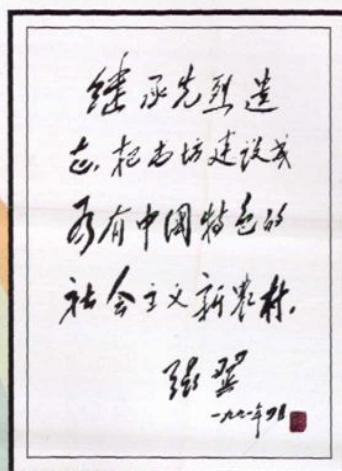 继承先烈遗
志,把尚坊建设成
为有中国特色的
社会主义新农村.
张翼
一九九一年